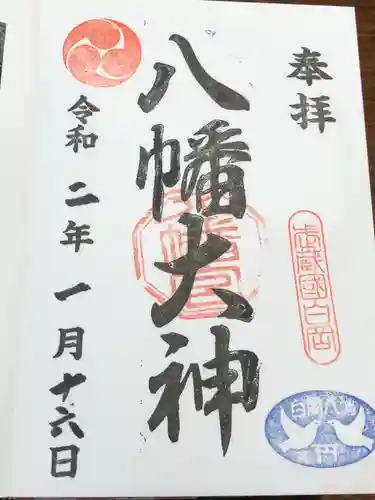 奉拝
武蔵國白岡
八幡大神
令和二年一月十六日